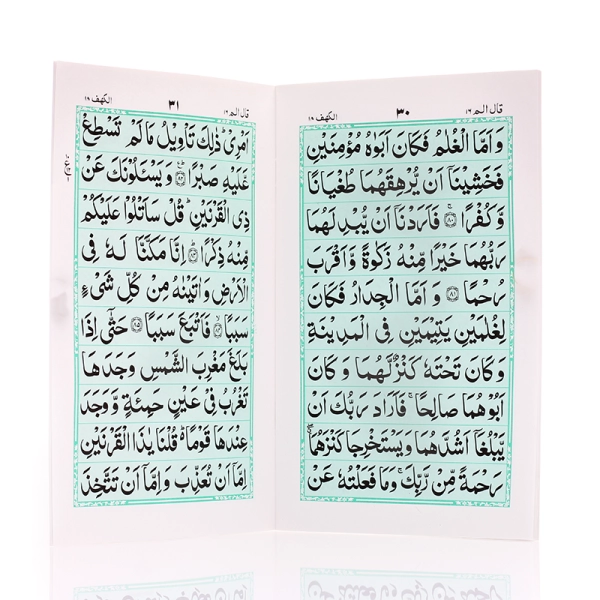 قال الم ١٦
٣٠
الكهف ١٨
وَ اَمَّا الْغُلٰمُ فَكَانَ اَبَوٰهُ مُؤْمِنَيْنِ
فَخَشِيْنَاۤ اَنْ يُّرْهِقَهُمَا طُغْيَانًا
وَّ كُفْرًا ۚ ﴿٨٠﴾ فَاَرَدْنَاۤ اَنْ يُّبْدِلَهُمَا
رَبُّهُمَا خَيْرًا مِّنْهُ زَكٰوةً وَّاَقْرَبَ
رُحْمًا ﴿٨١﴾ وَ اَمَّا الْجِدَارُ فَكَانَ
لِغُلٰمَيْنِ يَتِيْمَيْنِ فِى الْمَدِيْنَةِ
وَ كَانَ تَحْتَهٗ كَنْزٌ لَّهُمَا وَ كَانَ
اَبُوْهُمَا صَالِحًا ۚ فَاَرَادَ رَبُّكَ اَنْ
يَّبْلُغَاۤ اَشُدَّهُمَا وَ يَسْتَخْرِجَا كَنْزَهُمَا ۖ
رَحْمَةً مِّنْ رَّبِّكَ ۚ وَ مَا فَعَلْتُهٗ عَنْ
قال الم ١٦
٣١
الكهف ١٨
اَمْرِىْ ؕ ذٰلِكَ تَاْوِيْلُ مَا لَمْ تَسْطِعْ
عَّلَيْهِ صَبْرًا ؕ ﴿٨٢﴾ وَ يَسْـَٔلُوْنَكَ عَنْ
ذِى الْقَرْنَيْنِ ؕ قُلْ سَاَتْلُوْا عَلَيْكُمْ
مِّنْهُ ذِكْرًا ؕ ﴿٨٣﴾ اِنَّا مَكَّنَّا لَهٗ فِى
الْاَرْضِ وَ اٰتَيْنٰهُ مِنْ كُلِّ شَىْءٍ
سَبَبًا ۙ ﴿٨٤﴾ فَاَتْبَعَ سَبَبًا ﴿٨٥﴾ حَتّٰۤى اِذَا
بَلَغَ مَغْرِبَ الشَّمْسِ وَجَدَهَا
تَغْرُبُ فِىْ عَيْنٍ حَمِئَةٍ وَّ وَجَدَ
عِنْدَهَا قَوْمًا ؕ قُلْنَا يٰذَا الْقَرْنَيْنِ
اِمَّاۤ اَنْ تُعَذِّبَ وَ اِمَّاۤ اَنْ تَتَّخِذَ